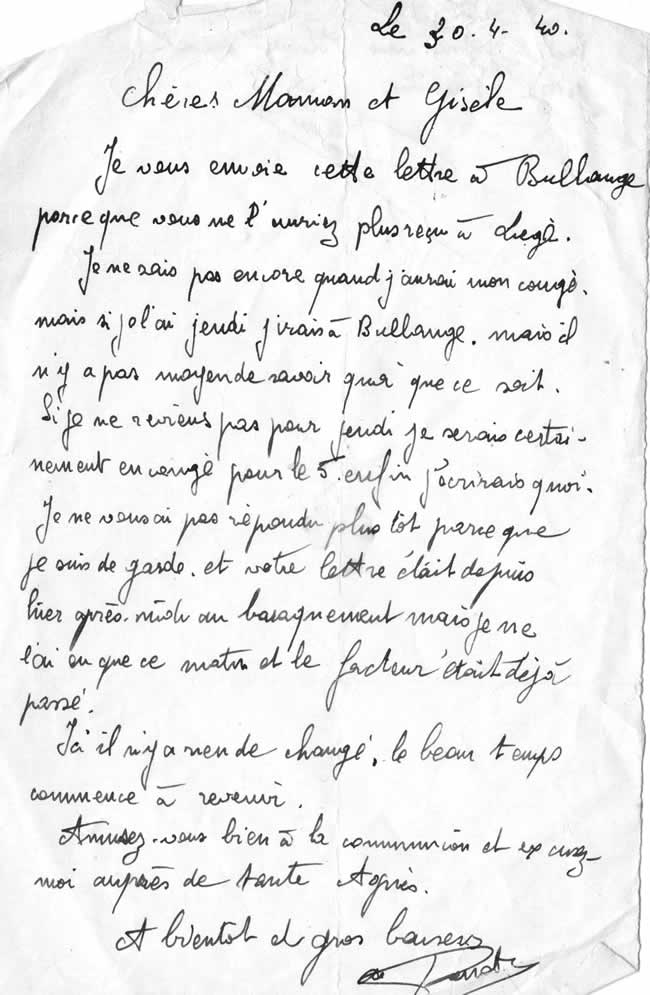 Le 30. 4. 40.
Chères Maman et Gisèle
Je vous envoie cette lettre à Bullange
parce que vous ne l'auriez plus reçu à Liegè.
Je ne sais pas encore quand j'aurai mon congè.
mais si je l'ai jeudi j'irais à Bullange. mais il
n'y a pas moyen de savoir quoi que ce soit.
Si je ne reviens pas pour jeudi je serais certai-
nement en congè pour le 5. enfin j'ecrirais quoi.
Je ne vous ai pas répondu plus tôt parce que
je suis de garde. et votre lettre était depuis
hier après-midi au baraquement mais je ne
l'ai eu que ce matin et le facteur était déjà
passé.
Ici il n'y a rien de changé, le beau temps
commence à revenir.
Amusez-vous bien à la communion et excusez-
moi auprès de tante Agnès.
A bientot et gros baisers